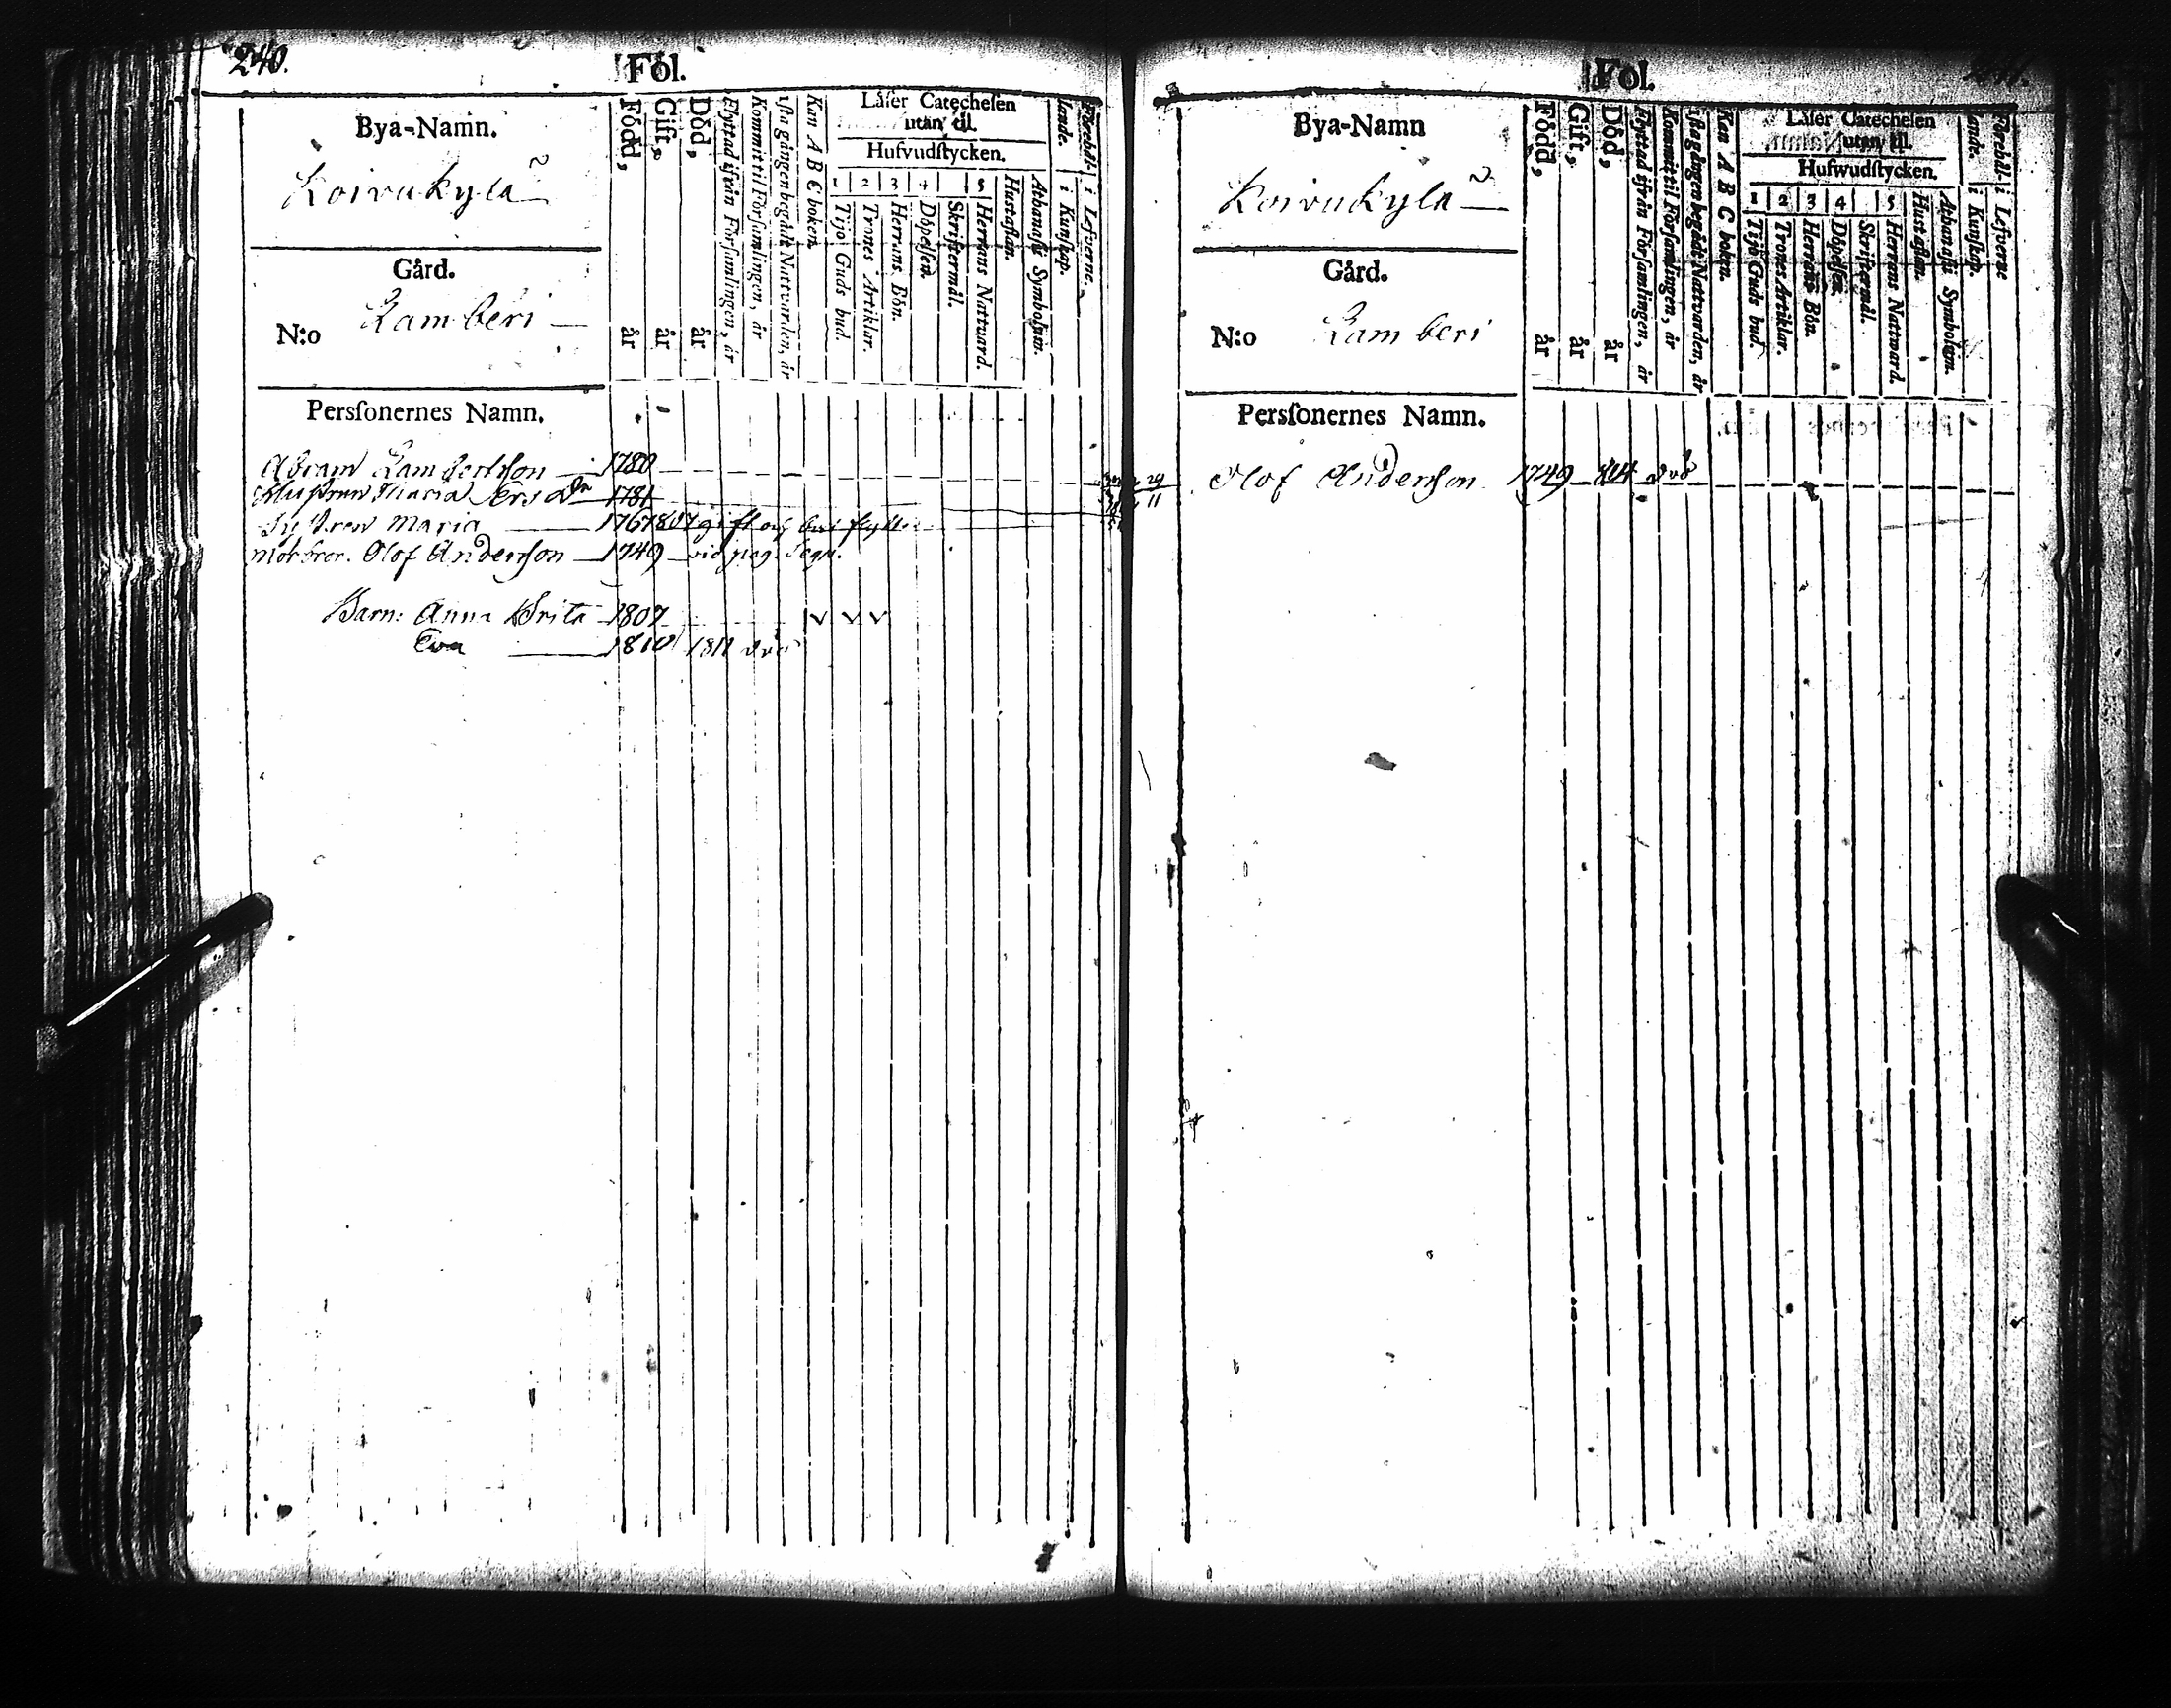 240.
Fol.
Bya-Namn.
Koivukylä
Gård.
N:o Lamberi
Persſonernes Namn.
Född, år
Gift, år
Död, år
Flyttad ifrån Förſamlingen, år
Kommit til Förſamlingen, år
iſta gången begådt Nattvarden, år
Kan A B C boken.
Läſer Catecheſen
utan til.
Hufvudſtycken.
1 2 3 4 5
Tijo Guds bud.
Trones Artiklar.
Herrans Bön.
Döpelſen.
Skriftermål.
Herrans Nattuard.
Huſtaflan.
Athanaſii Symbolum.
Förebållande.
i Kunſkap.
i Lefverne.
Abram Lambertsson 1780
Huſtrun Maria Ersd:r 1781
Syſtren Maria 1767 1807 gift och
Morbror. Olof Anderſson 1749 vid pag. Seqv.
Barn: Anna Brita 1807 v v v
Eva 1810 1811 död
Fol.
Bya-Namn
Koivukylä
Gård.
N:o Lamberi
Perſonernes Namn.
Född, år
Gift, år
Död, år
Flyttad ifrån Förſamlingen, år
Kommit til Förſamlingen, år
iſta gången begådt Nattvarden, år
Kan A B C boken.
Läſer Catecheſen
utan til.
Hufwudſtycken.
1 2 3 4 5
Tijo Guds bud.
Trones Artiklar.
Herrans Bön.
Döpelſen.
Skriftermål.
Herrans Nattward.
Huſtaflan.
Athanaſii Symbolum.
Förebållande.
i Kunſkap.
i Lefverne
Olof Anderſson 1749 814 död